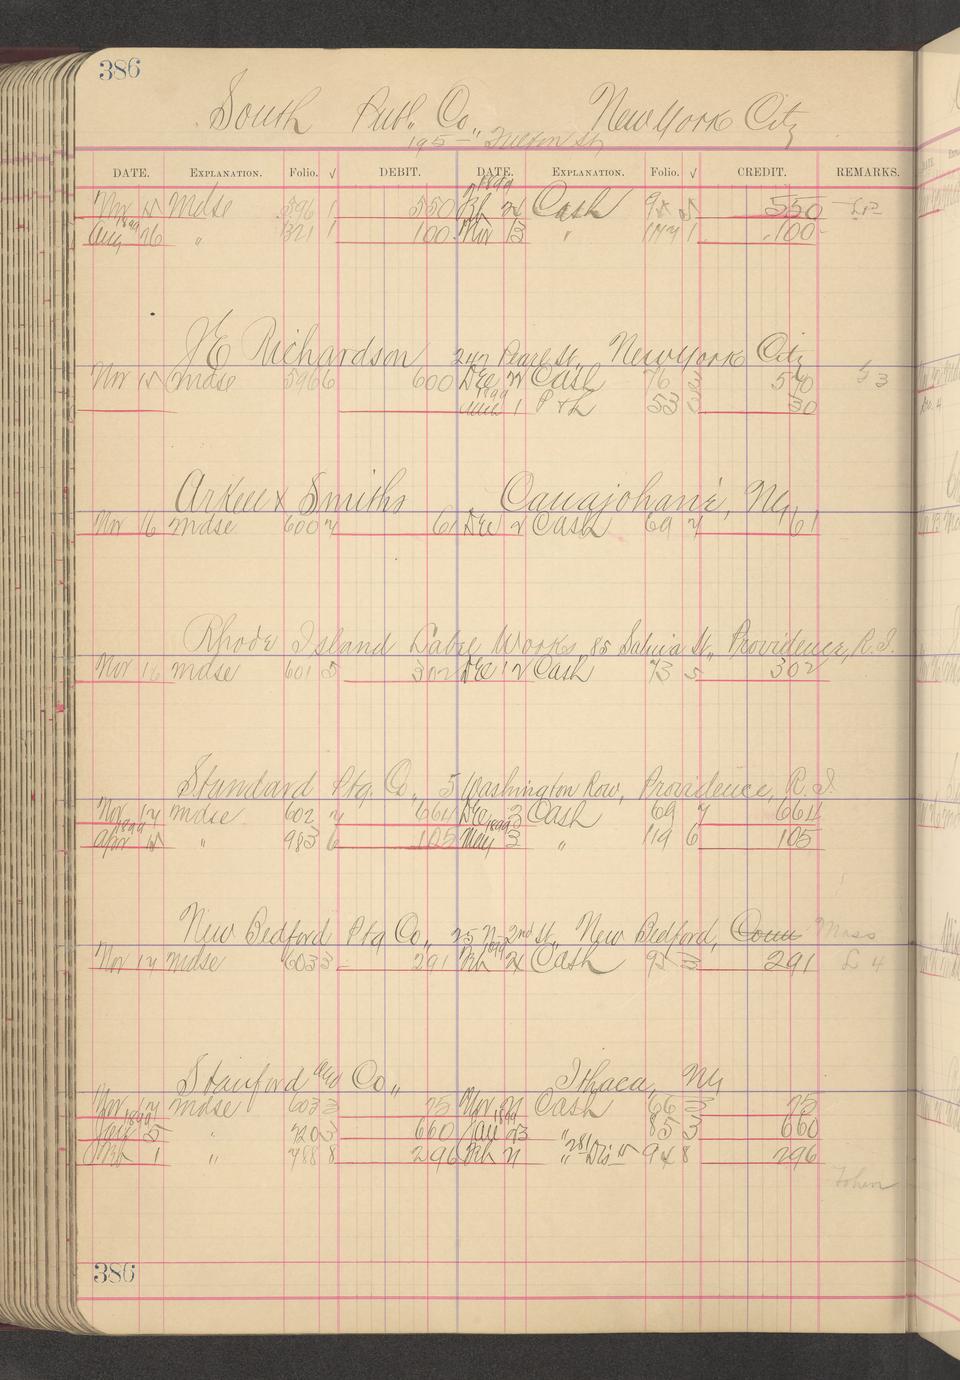 386
South Publ. Co., New York City
195 - Fulton St.
DATE. EXPLANATION. Folio. √ DEBIT. DATE. EXPLANATION. Folio. √ CREDIT. REMARKS.
1899
Nov 15 Mdse 596 1 550 Feb 24 Cash 95 550
1899
Aug 26 " 321 1 100 Nov 13 " 177 1 100
J E Richardson 247 Pearl St., New York City
Nov 15 Mdse 596 6 600 Dec 22 Cash 76 570
1899
1 P & L 53 30
Arkell & Smiths Canajoharie, NY
Nov 16 Mdse 600 7 61 Dec 2 Cash 69 7 61
Rhode Island Label Works, 85 St., Providence, R.I.
Nov 16 Mdse 601 5 302 Dec 12 Cash 73 5 302
Standard Ptg. Co., 5 Washington Row, Providence, R.I.
Nov 17 Mdse 602 7 664 Dec 3 Cash 69 7 664
1899 1899
Apr 15 " 983 6 105 May 3 " 119 6 105
New Bedford Ptg Co., 25 N- 2nd St., New Bedford, Conn Mass
1899
Nov 17 Mdse 603 3 291 Feb 24 Cash 95 291 L 4
Co., Ithaca, NY
Nov 17 Mdse 603 75 Nov 21 Cash 66 75
1899 1899
Jan 5 " 720 3 660 Jan 23 " 85 3 660
Feb 1 " 788 8 296 Feb " Dis 94 8 296
386